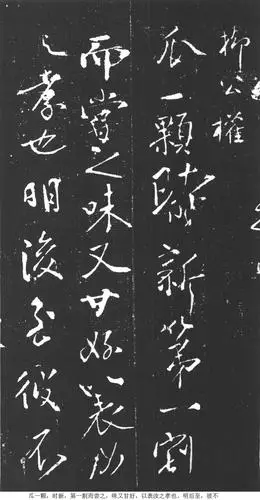 柳公權
瓜一顆時新第一割
而嘗之味又甘好以表汝
之孝也明後至彼不
瓜一颗，时新，第一割而尝之，味又甘好，以表汝之孝也，明后至，彼不